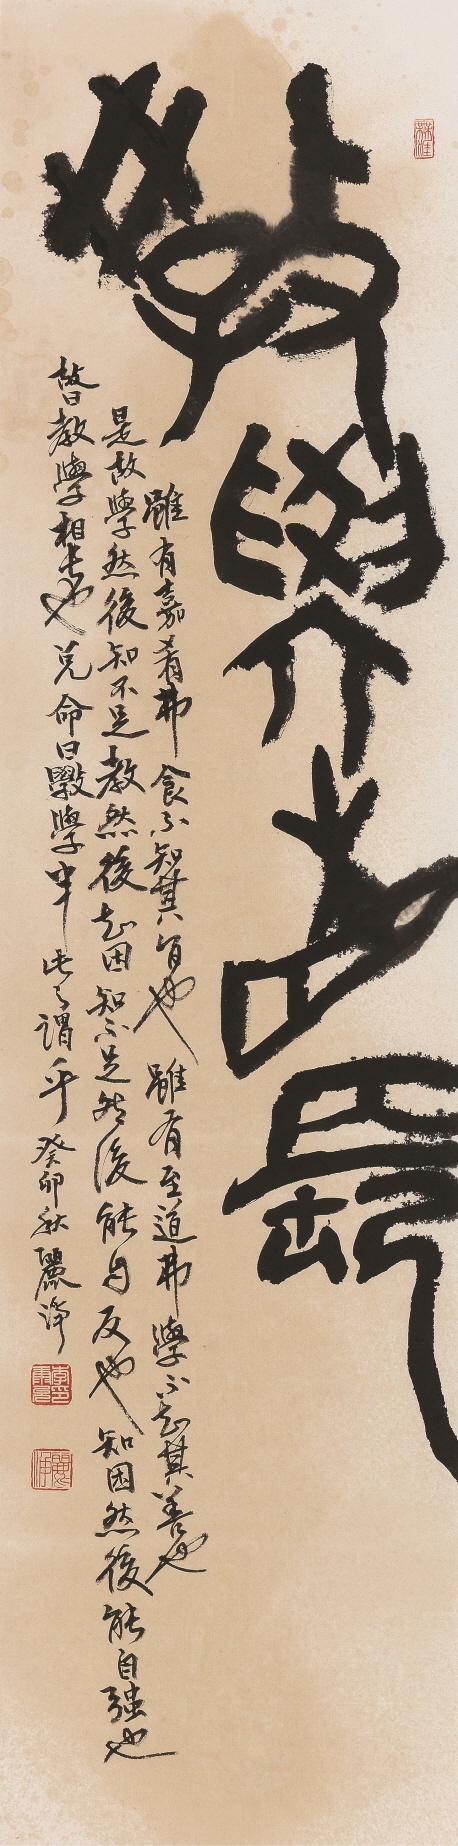 教學相長
雖有嘉肴弗食不知其旨也雖有至道弗學不知其善也
是故學然後知不足教然後知困知不足然後能自反也知困然後能自強也
故曰教學相長也兌命曰斆學半此之謂乎癸卯秋麗淨